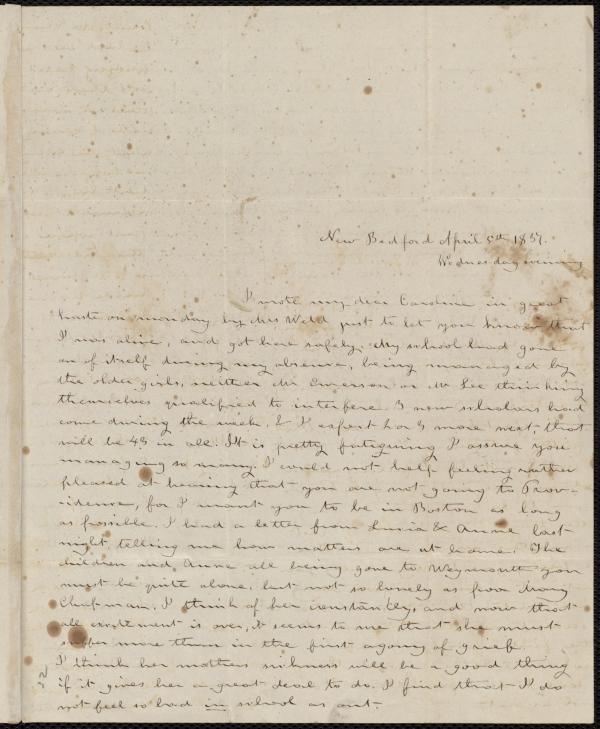 New Bedford April 5th 1837.
Wednesday evening
I wrote my dear Caroline in great
haste on monday by Mrs Weld just to let you know that
I was alive, and got here safely. My school had gone
on of itself during my absence, being managed by
the older girls, neither Mr Emerson or Mr Lee thinking
themselves qualified to interfere. 3 new scholars had
come during the week, & I expect 2 or 3 more next, that
will be 43 in all. It is pretty fatiguing I assure you
managing so many. I could not help feeling rather
pleased at hearing that you are not going to Prov-
idence, for I want you to be in Boston as long
as possible. I had a letter from Lucia & Anne last
night telling me how matters are at home. The
children and Anne all being gone to Weymouth you
must be quite alone, but not so lonely as poor Mary
Chapman. I think of her constantly, and now that
all excitement is over, it seems to me that she must
suffer more than in the first agony of grief.
I think her mothers sickness will be a good thing
if it gives her a great deal to do. I find that I do
not feel so bad in school as out-